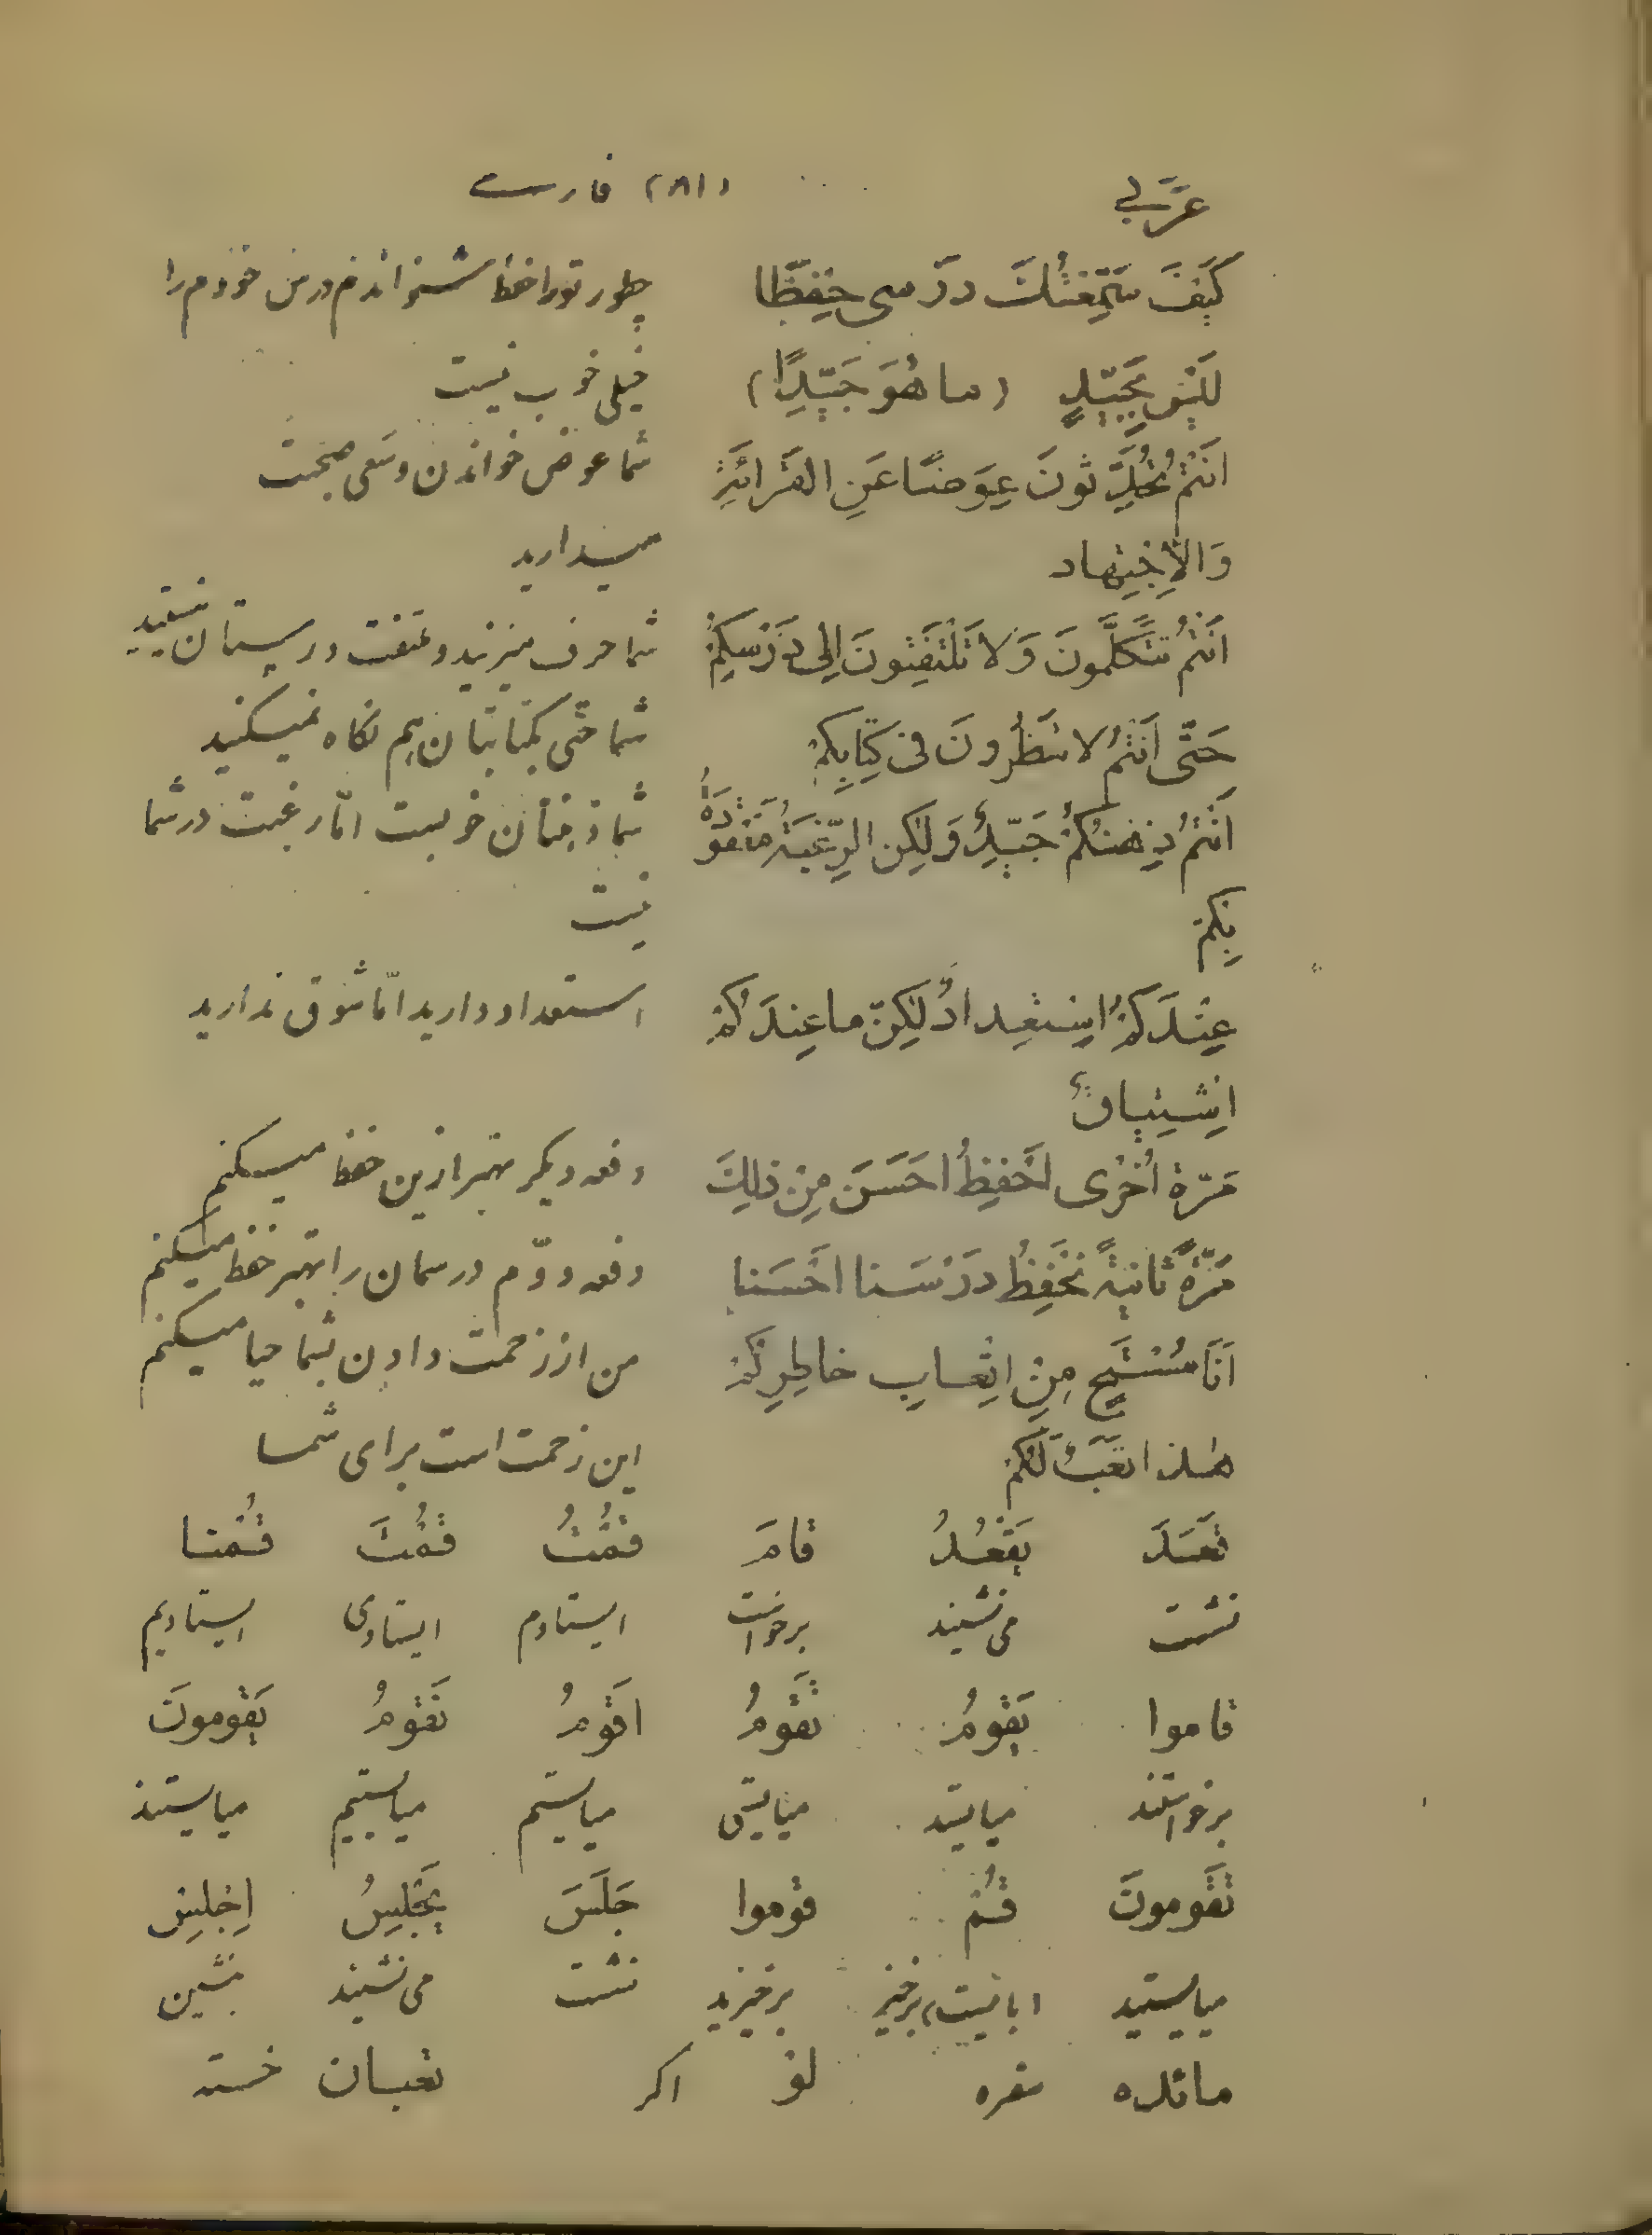 عَرَبی (۸۱) فارسی
كَيْفَ سَمَّعْتُكَ دَرْسی حِفْظًا چطور تورا حفظ شنواندم درس خودم را
لَيْسَ بِجَيِّدٍ (ما هُوَ جَيِّدًا) خیلی خوب نیست
اَنْتُمْ تُحَدِّثونَ عِوَضًا عَنِ القَرائَةِ شما عوض خواندن و سعی صحبت
وَالاِجْتِهاد میدارید
اَنْتُمْ تَتَكَلَّمونَ وَلا تَلْتَفِتونَ اِلی دَرْسِكُمْ شما حرف میزنید و ملتفت درستان نیستید
حَتّی اَنْتُمْ لا تَنْظُرونَ فی كِتابِكُمْ شما حتی بکتابتان هم نگاه نمیکنید
اَنْتُمْ ذِهْنُكُمْ جَيِّدٌ وَلٰكِن الرَّغْبَةُ مَفْقودَةٌ شما ذهنتان خوبست امّا رغبت در شما
بِكُمْ نیست
عِنْدَكُمْ اِسْتِعْدادٌ لٰكِنْ ما عِنْدَكُمْ استعداد دارید امّا شوق ندارید
اِشْتِياقٌ
مَرّةً اُخْرٰی اَحْفِظُ اَحْسَنَ مِنْ ذٰلِكَ دفعه دیگر بهتر ازین حفظ میکنم
مَرَّةً ثانيةً نَحْفِظُ دَرْسَنا اَحْسَنا دفعه دوّم درسمان را بهتر حفظ میکنیم
اَنَا مُسْتَحٍ مِنْ اِتْعابِ خاطِرِكُمْ من از زحمت دادن بشما حیا میکنم
هٰذا تَعَبٌ لَكُمْ این زحمت است برای شما
قَعَدَ يَقْعُدُ قامَ قُمْتُ قُمْتَ قُمْنا
نشست می نشیند برخواست ایستادم ایستادی ایستادیم
قاموا يَقومُ تَقومُ اَقومُ نَقومُ يَقومونَ
برخواستند میایستد میایستی میایستم میایستیم میایستند
تَقومونَ قُمْ قوموا جَلَسَ يَجْلِسُ اِجْلِسْ
میایستید (بایست) برخیز برخیزید نشست می نشیند بنشین
مائده سفره لَوْ اکر تعبان خسته